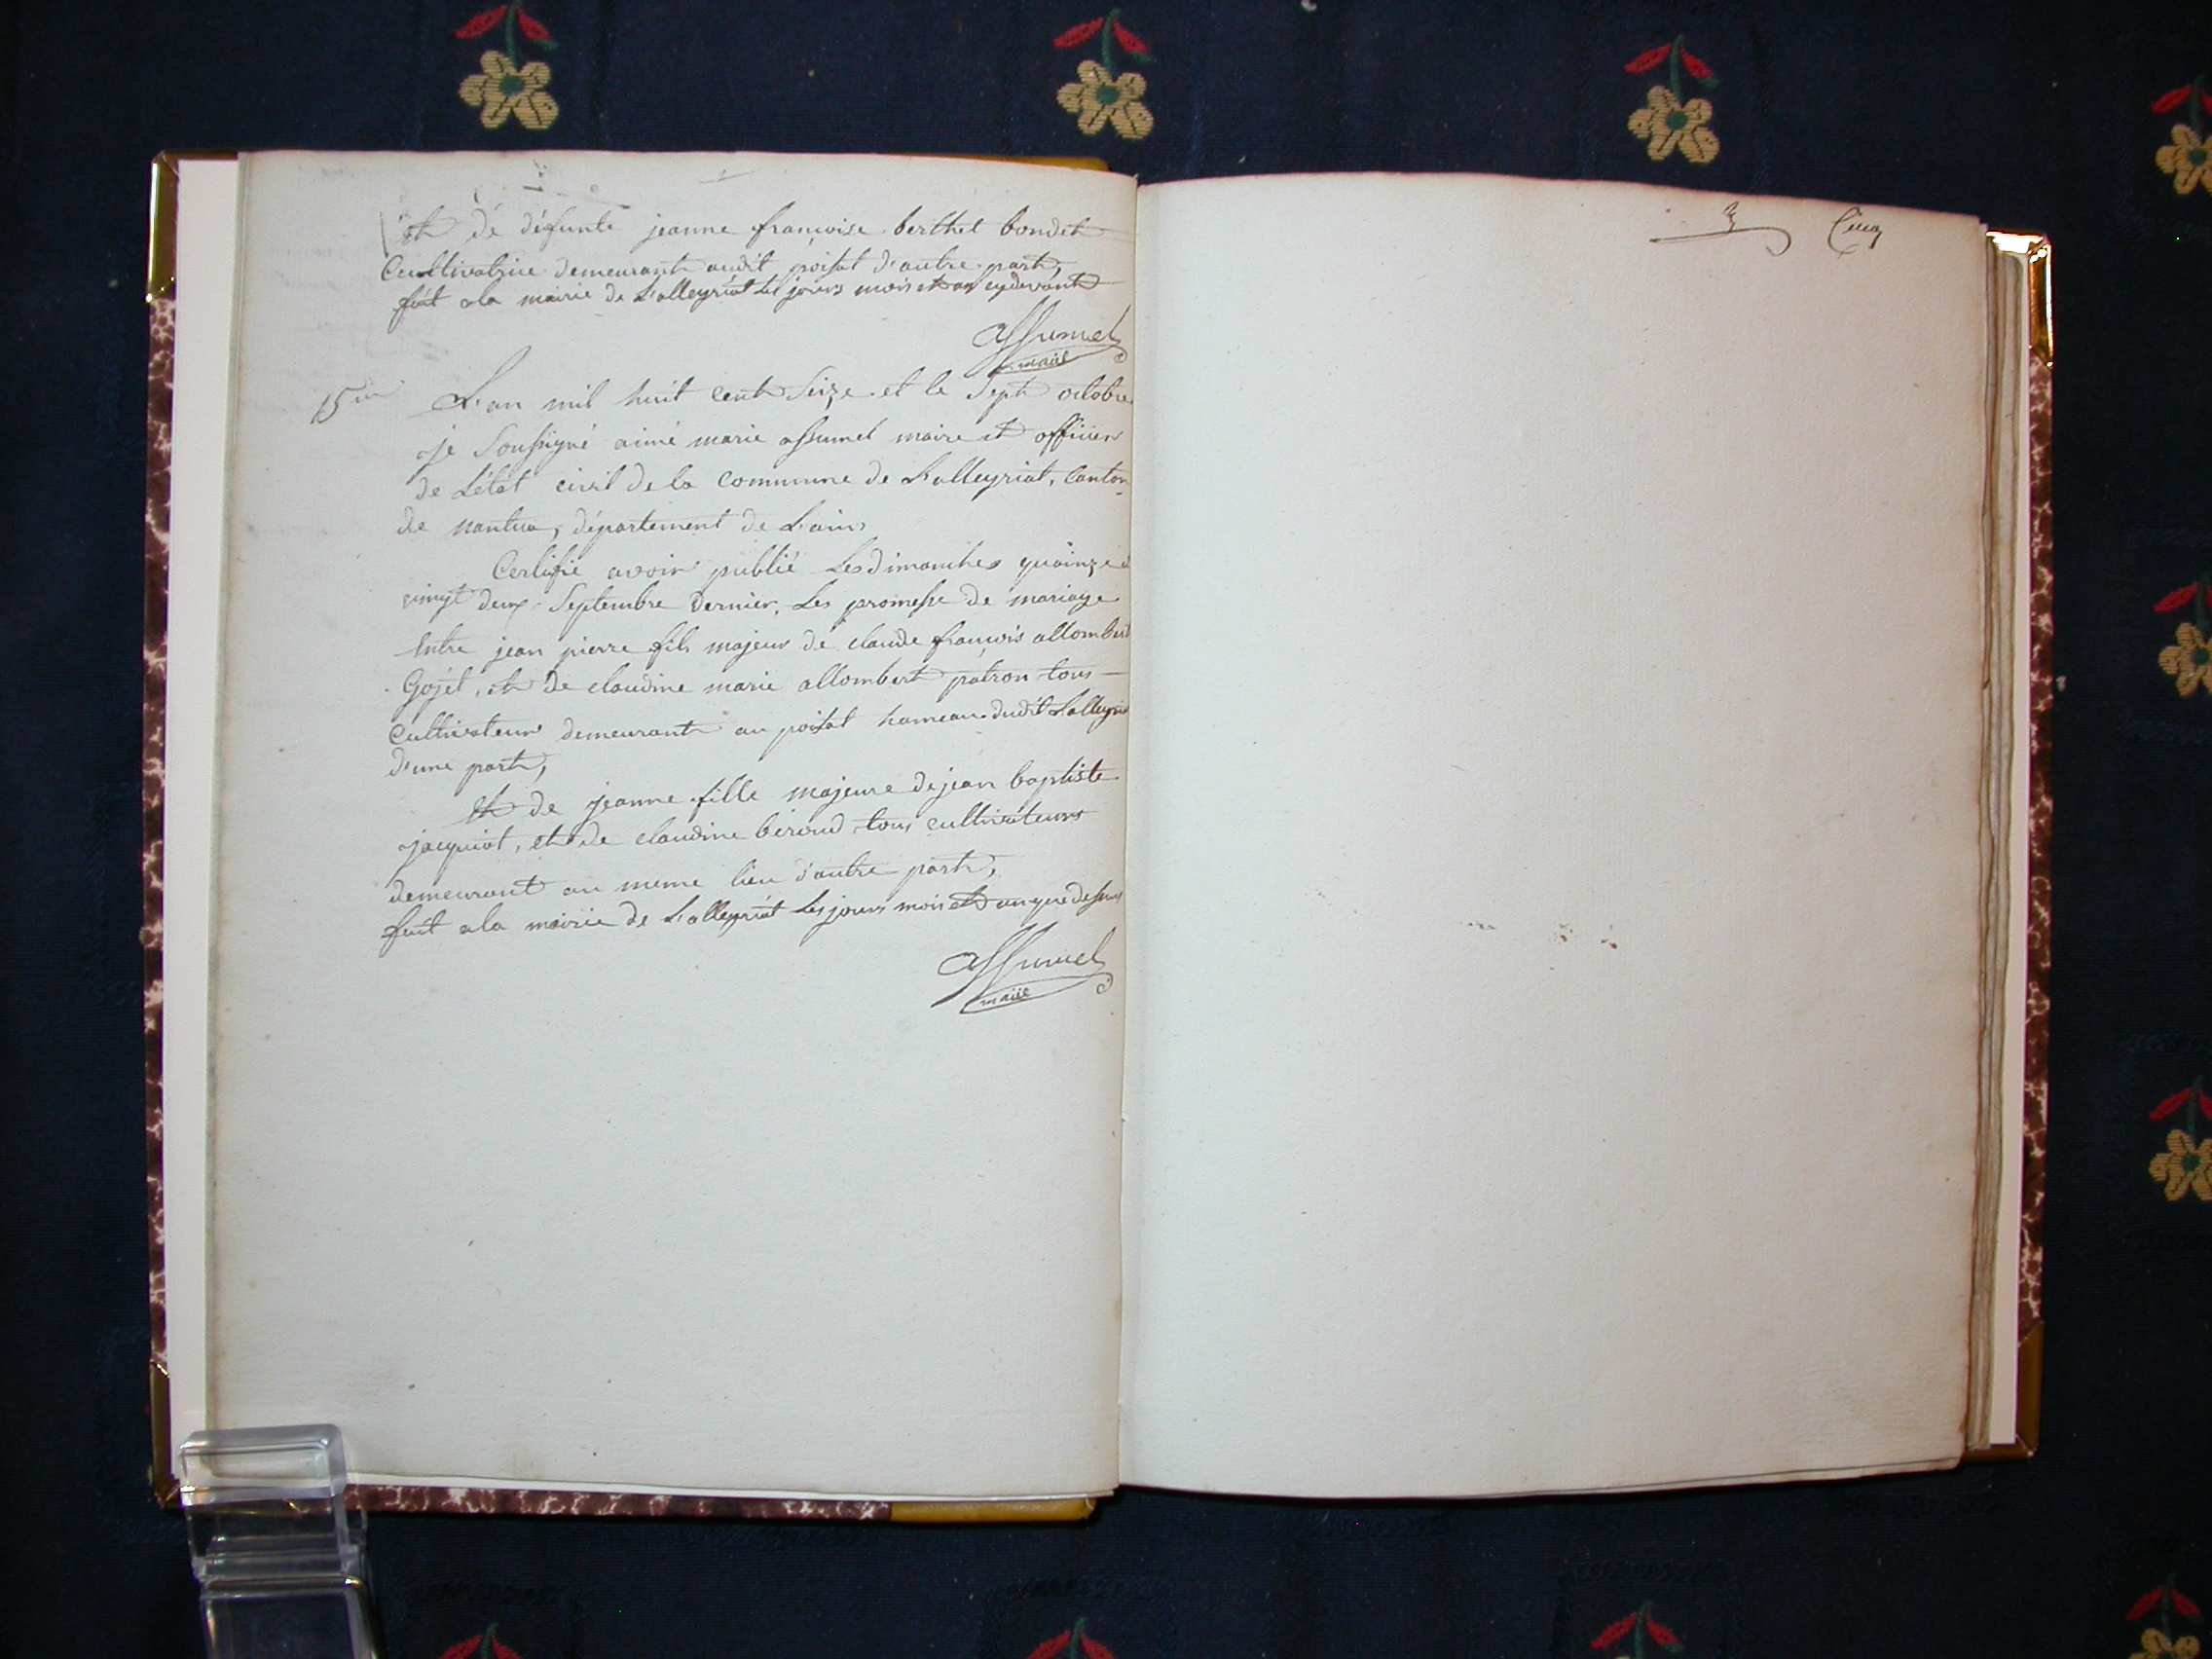 et de défunte jeanne françoise berthet bondet
Cultivatrice demeurant audit poisat d'autre part,
fait a la mairie de Lalleyriat les jours mois et an cydevant
assumel
maire
15me
L'an mil huit cent seize et le sept octobre
je soussigné aimé marie assumel maire et officier
de l'état civil de la commune de Lalleyriat, canton
de nantua, département de L'ain
Certifie avoir publié les dimanches quainze
vingt deux septembre dernier, les promesse de mariage
Entre jean pierre fils majeur de claude françois allombert
Gojet, et de claudine marie allombert patron tous
Cultivateur demeurant au poisat hameau dudit Lalleyriat
d'une part,
et de jeanne fille majeure de jean baptiste
jacquiot, et de claudine béroud tous cultivateurs
demeurant au meme lieu d'autre part,
fait a la mairie de Lalleyriat les jours mois et an que dessus
assumel
maire
3